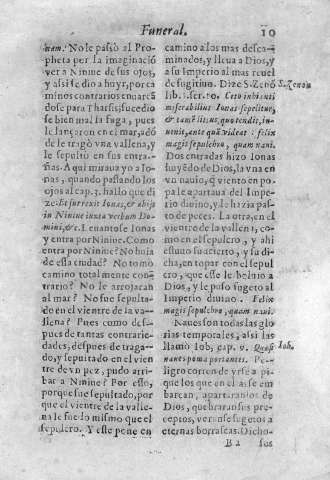 Funeral. 10
nam. No le passò al Pro-
pheta por la imaginaciõ
ver a Niniue de sus ojos,
y assi se dio a huyr, por ca
minos contrarios encarã
dose para Tharsis; sucedio
se bien mal la fuga, pues
le lançaron en el mar, adõ
de le tragò vna vallena, y
le sepultò en sus entra-
ñas. Aqui miraua yo a Io-
nas, quando passando los
ojos al cap. 3. hallo que di
ze: Et surrexit Ionas, & abijt
in Niniue iuxta verbum Do-
mini, &c. Leuantose Ionas
y entra por Niniue. Como
entra por Niniue? No huia
de essa ciudad? No tomò
camino totalmente con-
trario? No le arrojaron
al mar? No fue sepulta-
do en el vientre de la va-
llena? Pues como des-
pues de tantas contrarie-
dades, despues de traga-
do, y sepultado en el vien
tre de vn pez, pudo arri-
bar a Niniue? Por esso,
porque fue sepultado, por
que el vientre de la valle-
na le fue lo mismo que el
sepulcro. Y este pone en
camino a los mas desca-
minados, y lleua a Dios, y
a su Imperio al mas reuel
de fugitiuo. Dize S. Zenõ
lib. ser. 10. Ceto inhianti
miserabilius Ionas sepelitur,
& tamẽ
magis sepulchro, quam naui.
Dos entradas hizo Ionas
huyẽdo de Dios, la vna en
vn nauio, q̃ viento en po-
pa le apartaua del Impe-
rio diuino, y le hazia pas-
to de peces. La otra, en el
vientre de la vallena, co-
mo en el sepulcro, y ahi
estuuo su acierto, y su di-
cha, en topar con el sepul
cro, que esse le boluio a
Dios, y le puso sugeto al
Imperio diuino. Felix
magis sepulchro, quam naui.
Naues son todas las glo
rias temporales, assi las
llamò Iob, cap. 9. Quasi
naues poma portantes. Pe-
ligro corren de yrse a pi-
que los que en ellas se em
barcan, apartaranlos de
Dios, quebraran sus pre-
ceptos, veranse sugetos a
eternas borrascas. Dicho-
S. Zenon
Iob.
B 2 sos